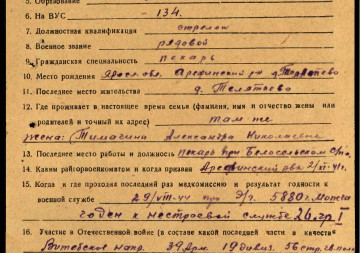 5. Образование
6. На ВУС 134.
7. Должностная квалификация стрелок
8. Военное звание рядовой
9. Гражданская специальность пекарь
10. Место рождения Ярославс. Арефинский р-н д.
11. Последнее место жительства д. Телятьево
12. Где проживает в настоящее время семья (фамилия, имя и отчество жены или
родителей и точный их адрес) там же
жена: Тимагина Александра Николаевна
13. Последнее место работы и должность пекарь при Белосельском с/по
14. Каким райгорвоенкоматом и когда призван Арефинский рвк 2/VI-41г.
15. Когда и где проходил последний раз медкомиссию и результат годности к
военной службе 29/VIII-44 при Э/г. 5880 г.
годен к нестроевой службе 2б. гр. I
16. Участие в Отечественной войне (в составе какой последней части в качестве
Витебское напр. 39 Арм. 19 дивиз. 56 стр. гв. полк